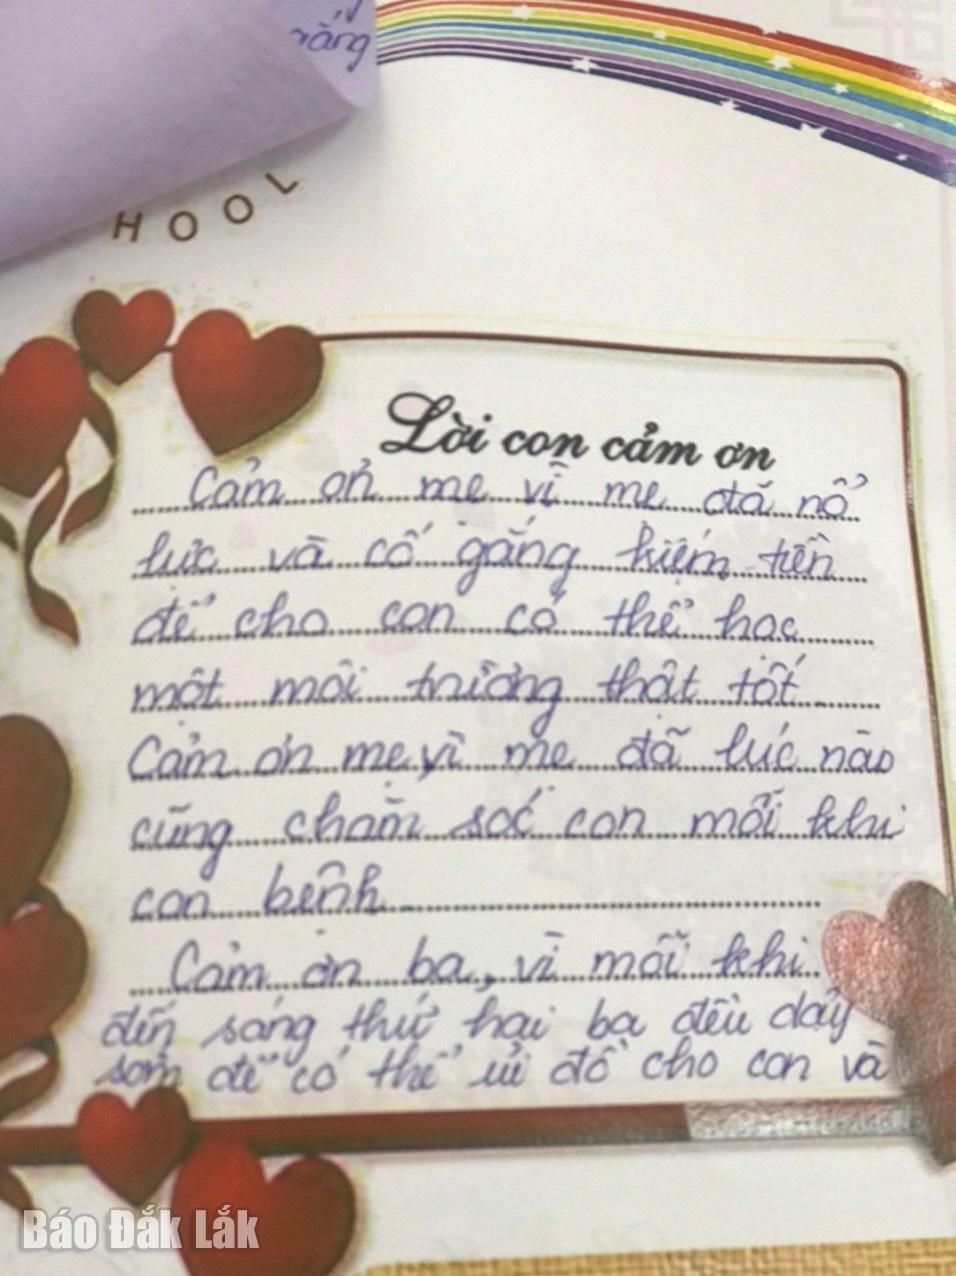 rắng
HOOL
Lời con cảm ơn
Cảm ơn mẹ vì mẹ đã nỗ
lực và cố gắng kiếm tiền
để cho con có thể học
một môi trường thật tốt
Cảm ơn mẹ vì mẹ đã lúc nào
cũng chăm sóc con mỗi khi
con bệnh
Cảm ơn ba, vì mỗi khi
đến sáng thứ hai ba đều dậy
sớm để có thể ủi đồ cho con và
Báo Đắk Lắk